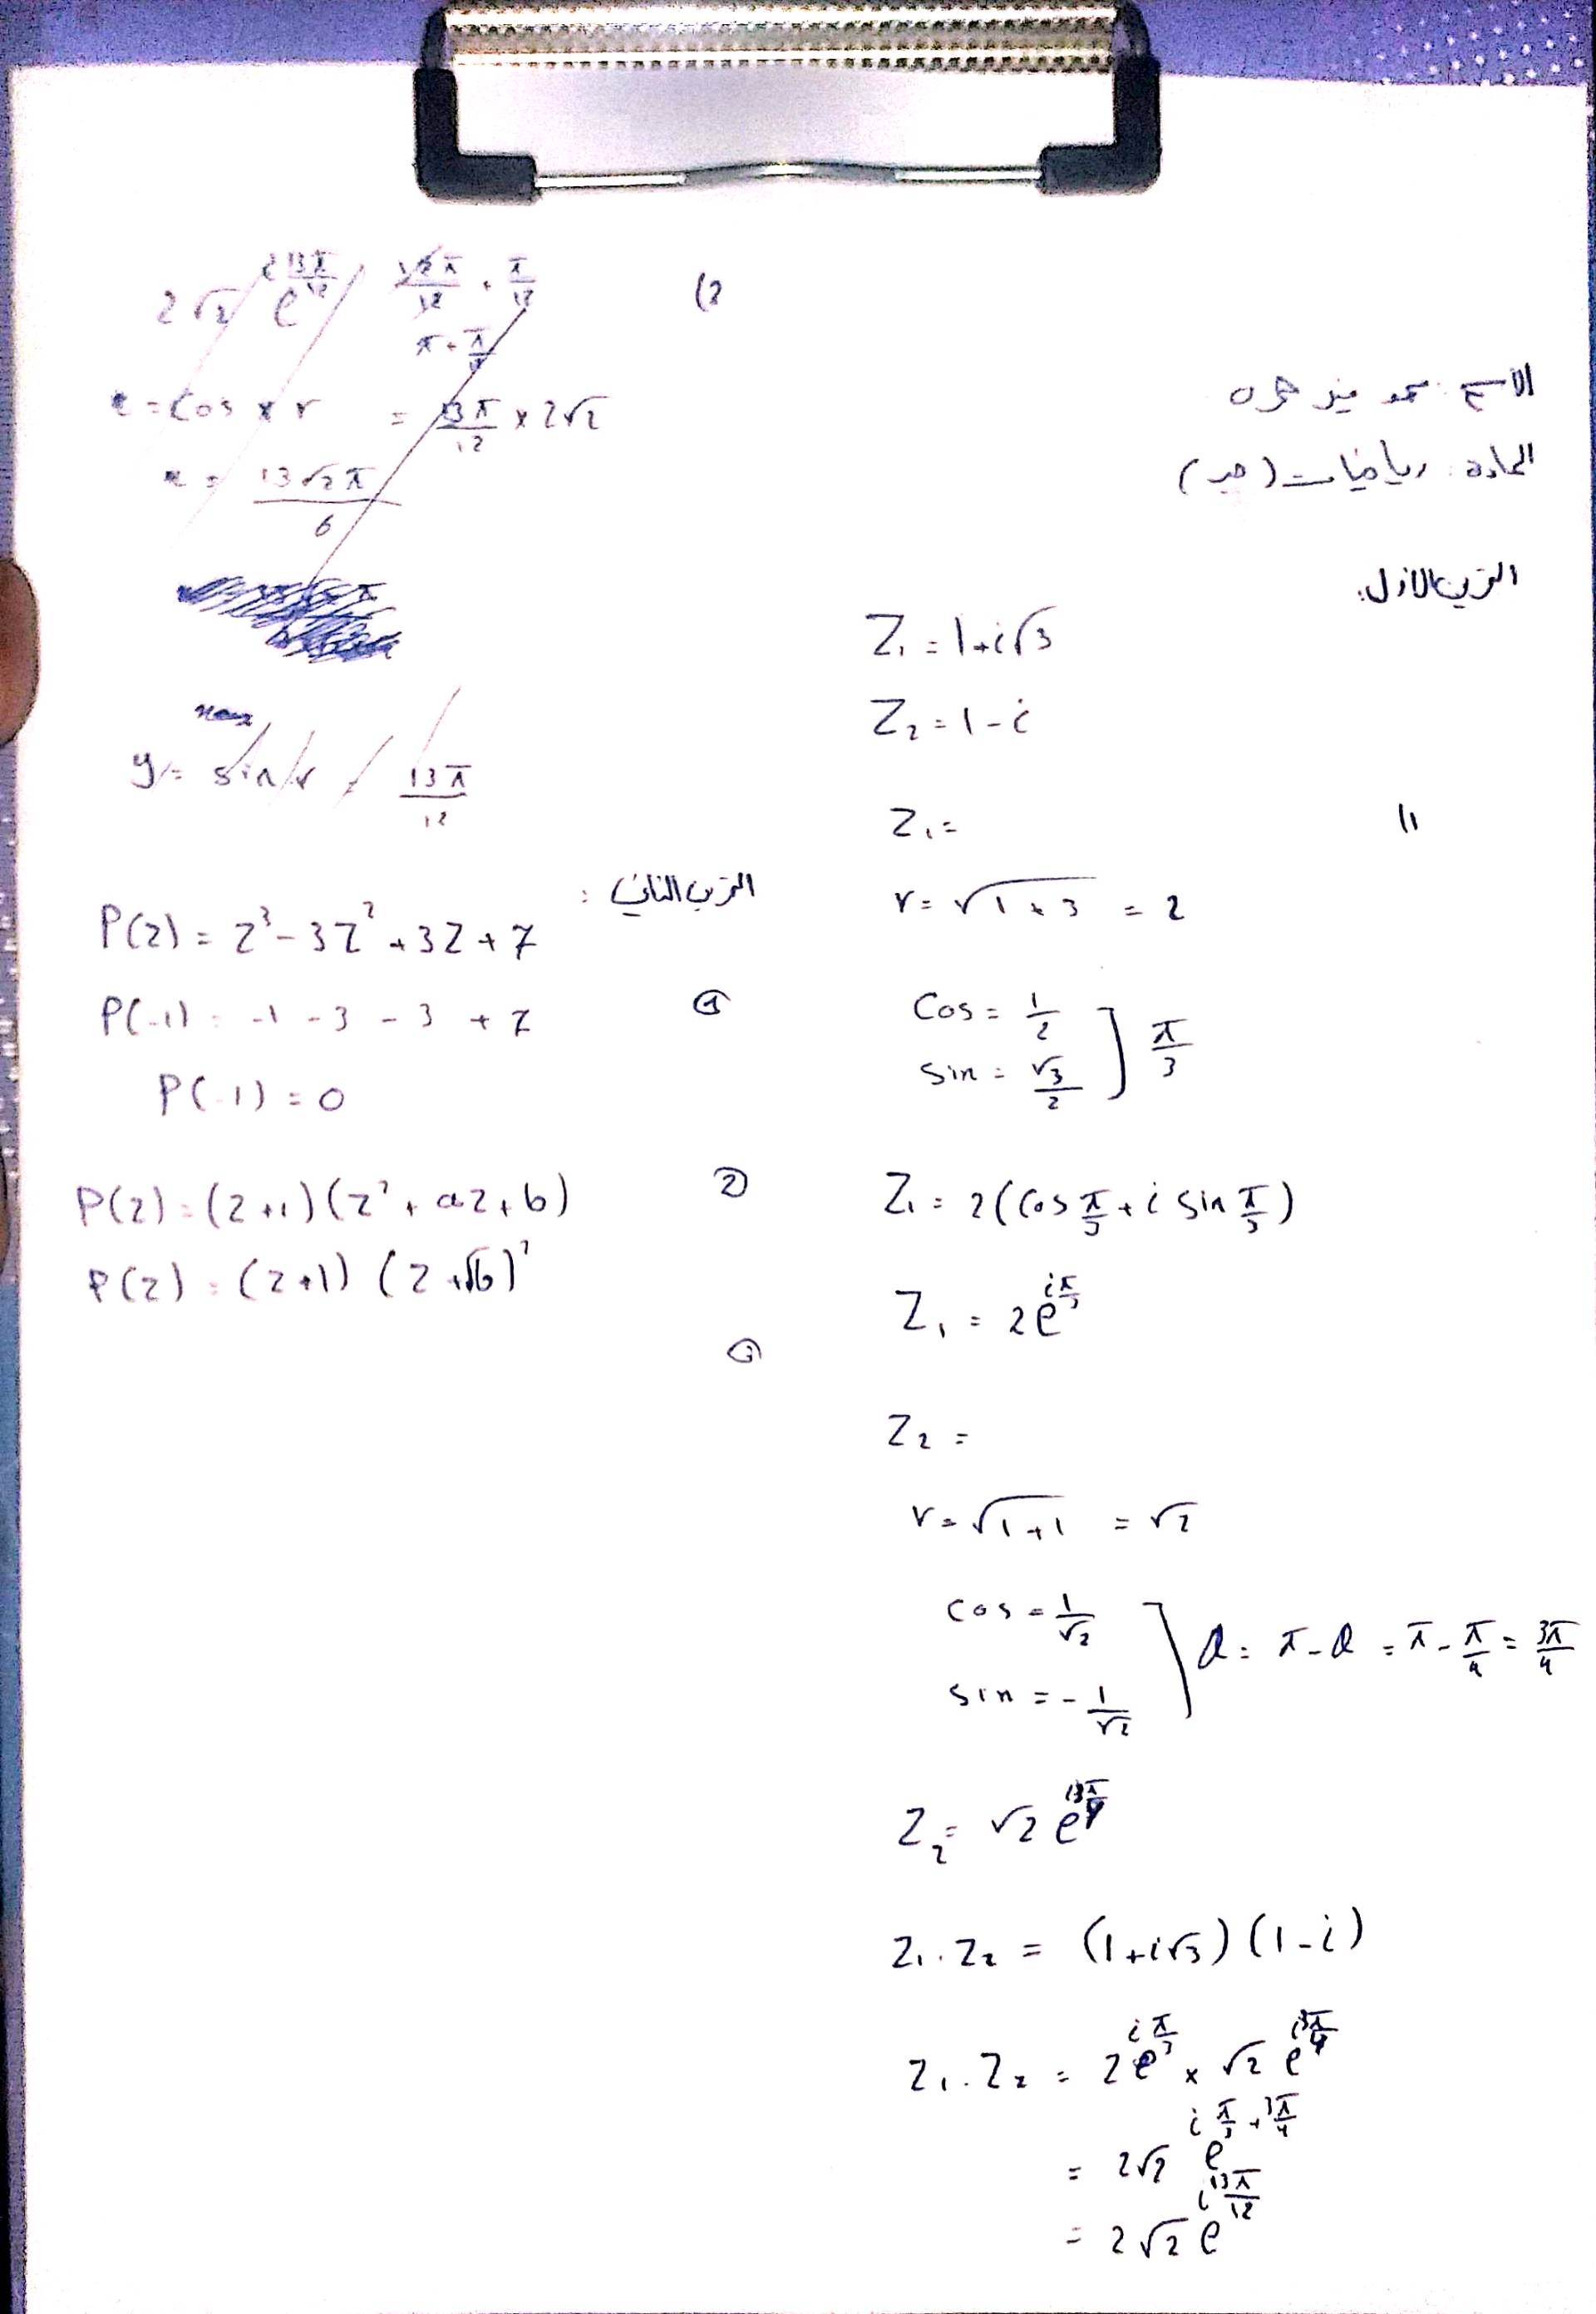 الاسم: محمد
المادة: رياضيات (جبر)
التمرين الأول:
Z₁ = 1+i√3
Z₂ = 1-i
1)
Z₁ =
r = √(1+3) = 2
Cos = 1/2
sin = √3/2 ] π/3
Z₁ = 2(Cos π/3 + i sin π/3)
Z₁ = 2e^(iπ/3)
Z₂ =
r = √(1+1) = √2
cos = 1/√2
sin = -1/√2 ] θ = π-θ = π-π/4 = 3π/4
Z₂ = √2 e^(i3π/4)
Z₁.Z₂ = (1+i√3)(1-i)
Z₁.Z₂ = 2e^(iπ/3) × √2 e^(i3π/4)
= 2√2 e^(i π/3+3π/4)
= 2√2 e^(i13π/12)
2)
2√2 e^(i13π/12) 12π/12 + π/12
π + π/12
x = Cos × r = 13π/12 × 2√2
x = 13√2π/6
y = sin/r 13π/12
التمرين الثاني:
P(z) = z³-3z²+3z+7
① P(-1) = -1 -3 -3 +7
P(-1) = 0
② P(z) = (z+1)(z²+az+b)
P(z) = (z+1)(z+√b)²
③